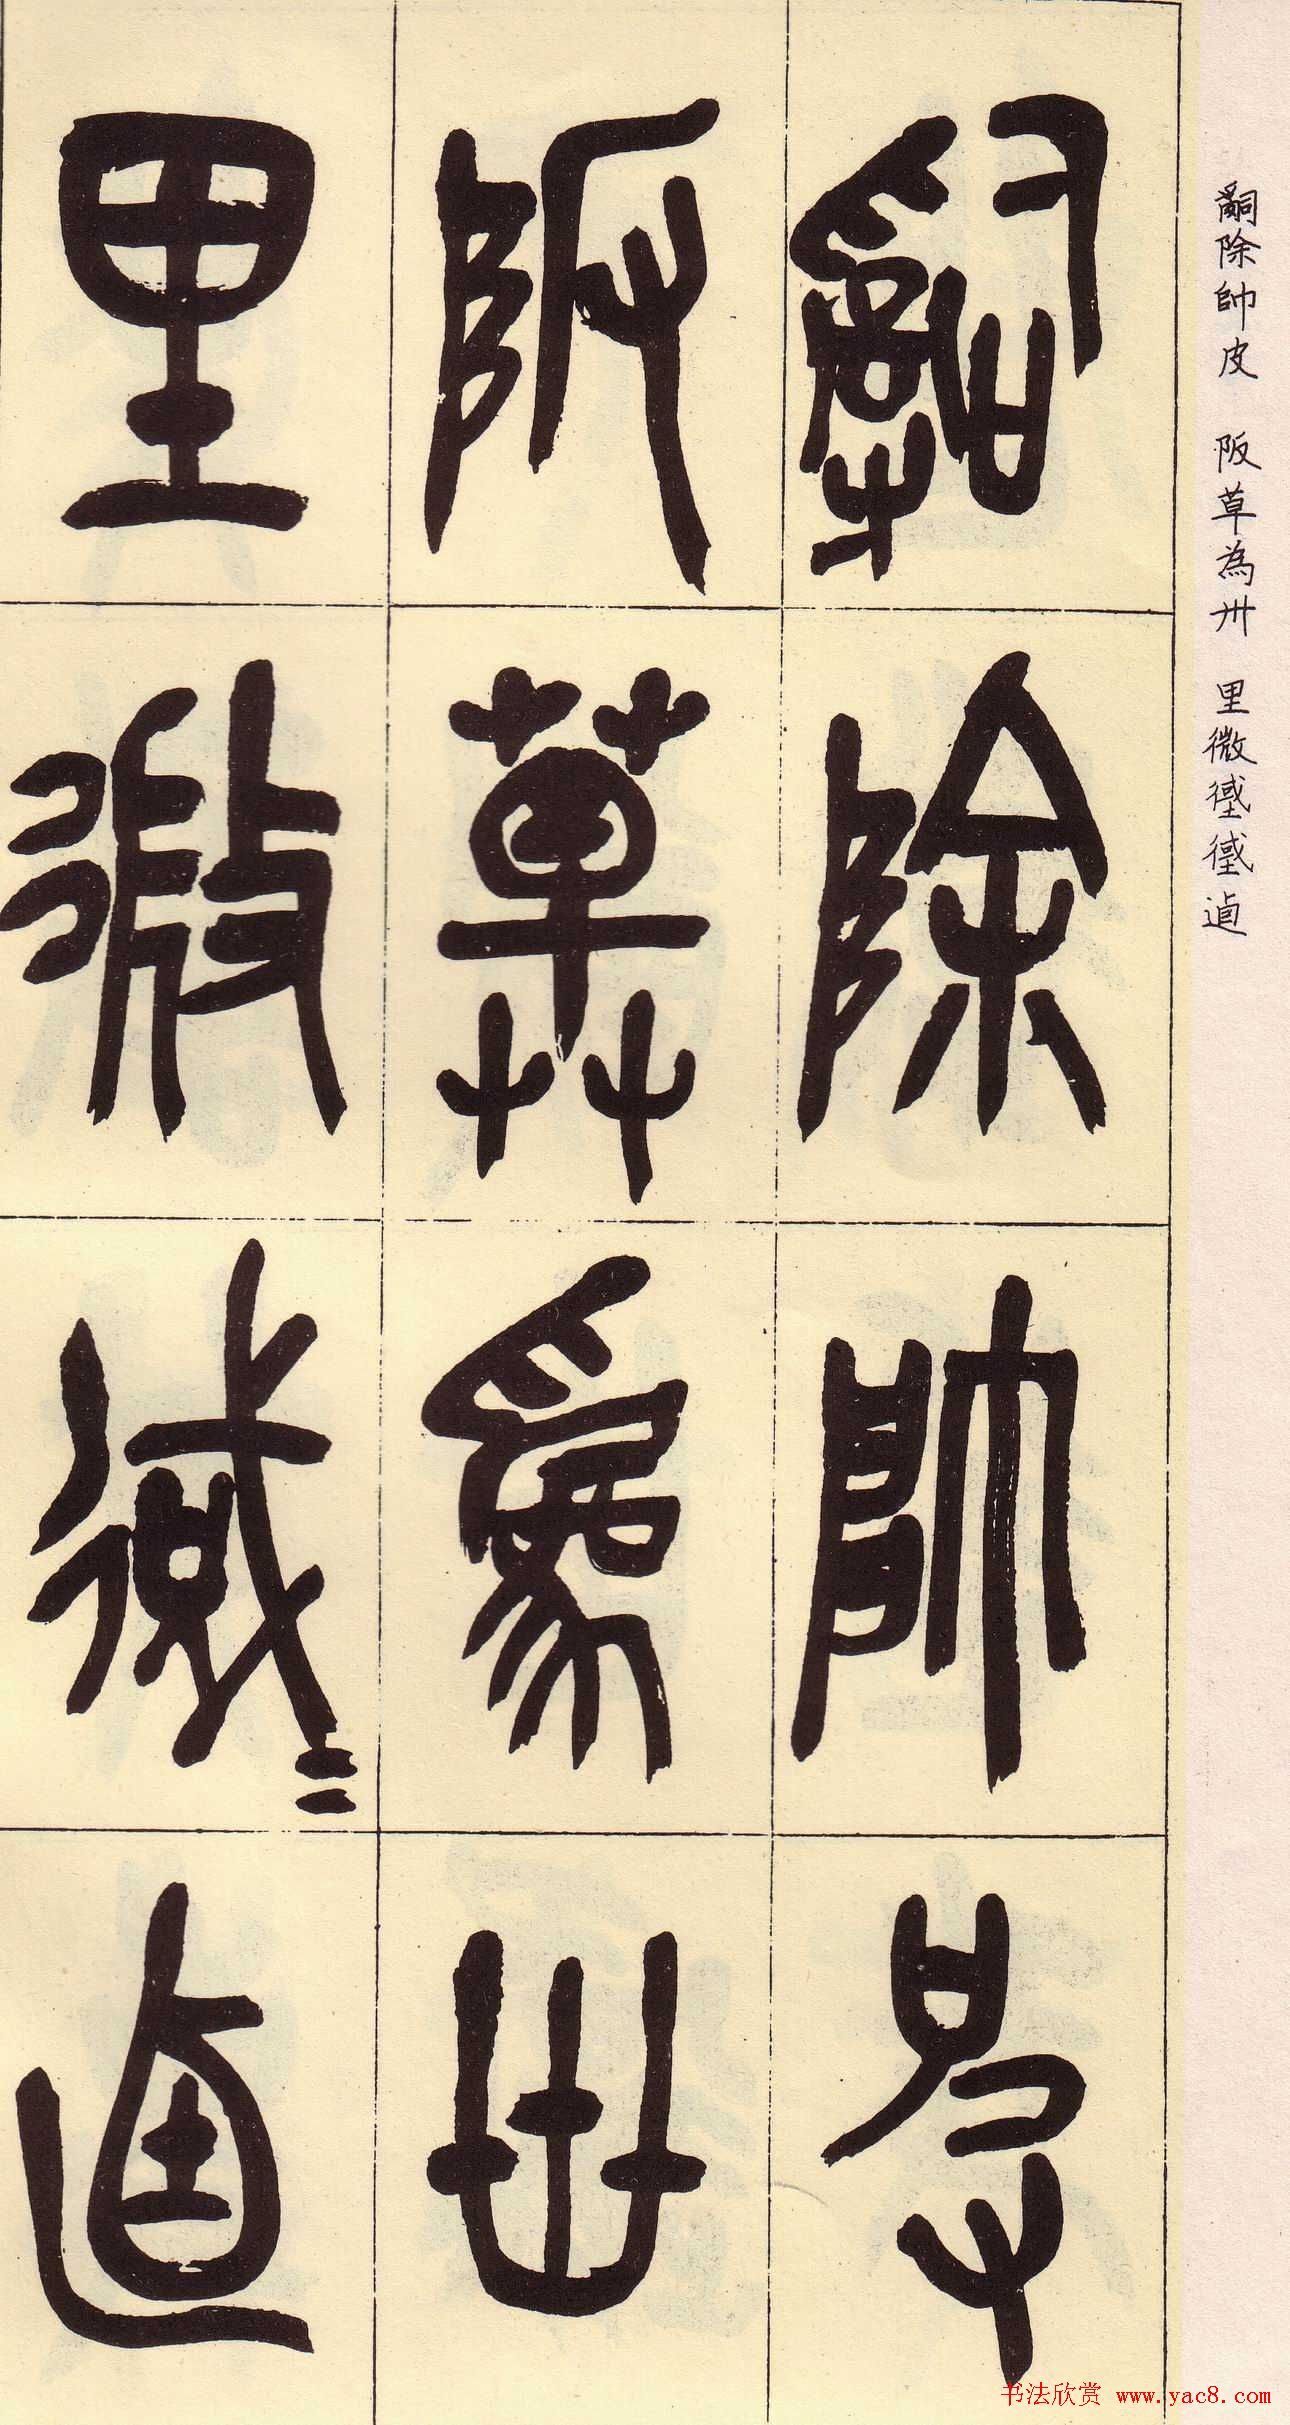 𤔲除帥皮
阪草為卅
里微逌
𤔲除帥皮 阪草為卅 里微逌
书法欣赏 www.yac8.com